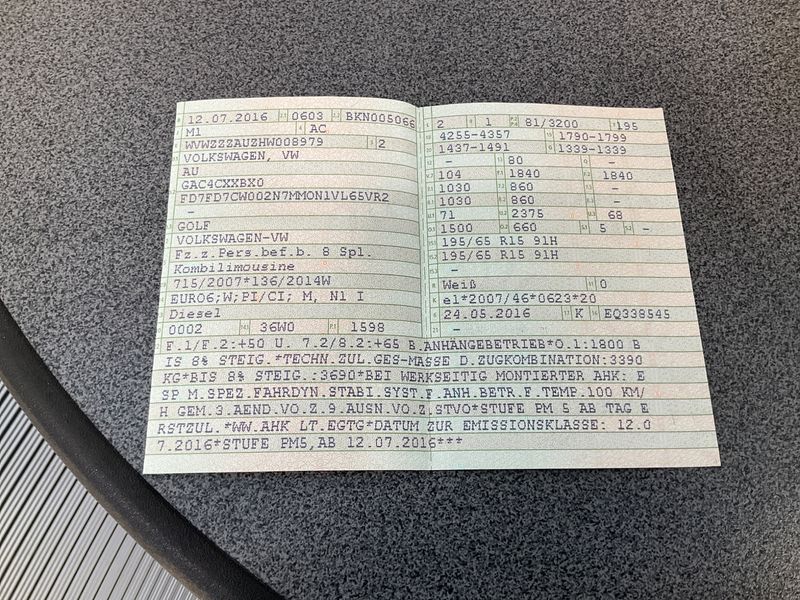 12.07.2016 0603 BKN005066
M1 AC
WVWZZZAUZHW008979 2
VOLKSWAGEN, VW
AU
GAC4CXXBX0
FD7FD7CW002N7MMON1VL65VR2
–
GOLF
VOLKSWAGEN-VW
Fz.z.Pers.bef.b. 8 Spl.
Kombilimousine
715/2007*136/2014W
EURO6;W;PI/CI; M, N1 I
Diesel
0002 36W0 1598
2 1 81/3200 195
4255-4357 1790-1799
1437-1491 1339-1339
– 80 –
104 1840 1840
1030 860
1030 860
71 2375 68
1500 660 5 –
195/65 R15 91H
195/65 R15 91H
–
Weiß 0
e1*2007/46*0623*20
24.05.2016 K EQ338545
–
F.1/F.2:+50 U. 7.2/8.2:+65 B.ANHÄNGEBETRIEB*O.1:1800 B
IS 8% STEIG.*TECHN.ZUL.GES-MASSE D.ZUGKOMBINATION:3390
KG*BIS 8% STEIG.:3690*BEI WERKSEITIG MONTIERTER AHK: E
SP M.SPEZ.FAHRDYN.STABI.SYST.F.ANH.BETR.F.TEMP.100 KM/
H GEM.3.AEND.VO.Z.9.AUSN.VO.Z.STVO*STUFE PM 5 AB TAG E
RSTZUL.*WW.AHK LT.EGTG*DATUM ZUR EMISSIONKLASSE: 12.0
7.2016*STUFE PM5,AB 12.07.2016***